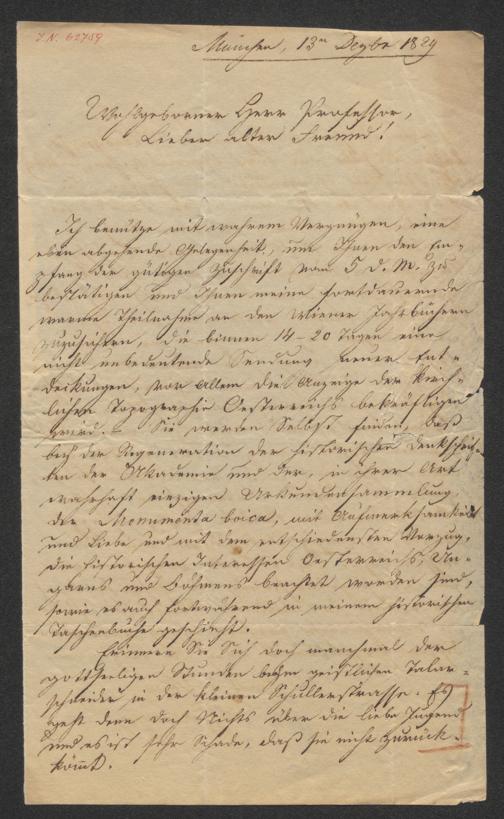 I. N. 62759
München, 13n Dezbr 1829
Wohlgeborner Herr Professor,
Lieber alter Freund!
Ich benütze mit wahrem Vergnügen, eine
eben abgehende Gelegenheit, um Ihnen den Em-
pfang der gütigen Zuschrift vom 5 d. M. zu
bestätigen und Ihnen meine fortdauernde
warme Theilnahme an den Wiener Jahrbüchern
zuzusichern, die binnen 14-20 Tagen eine
nicht unbedeutende Sendung neuer Ent-
deckungen, vor allem die Anzeige der Kirch-
lichen Topographie Oesterreichs bekräftigen
wird. – Sie werden Selbst finden, daß
bey der Regeneration der historischen Denkschrif-
ten der Akademie und der, in ihrer Art
wahrhaft einzigen Urkundensammlung,
der Monumenta boica, mit Aufmerksamkeit
und Liebe und mit dem entschiedensten Vorzug,
die historischen Interessen Oesterreichs, Un-
garns und Böhmens beachtet worden sind,
sowie es auch fortwährend in meinem historischen
Taschenbuche geschieht.
Erinnern Sie Sich doch manchmal der
gottseeligen Stunden beym geistlichen Talar-
schneider in der kleinen Schullerstrasse. Es
geht denn doch Nichts über die liebe Jugend
und es ist sehr Schade, daß sie nicht zurück-
kömmt.